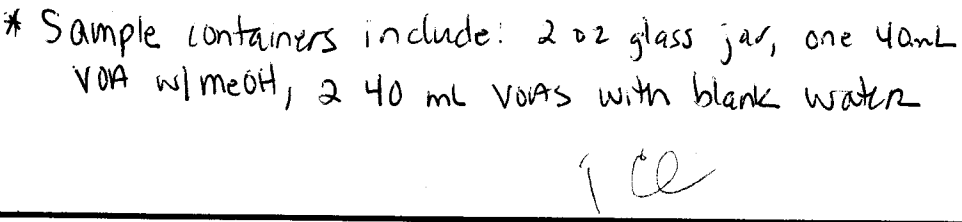 * Sample containers include: 2 oz glass jar, one 40mL
VOA w/ meOH, 2 40 mL VOAs with blank water
ice